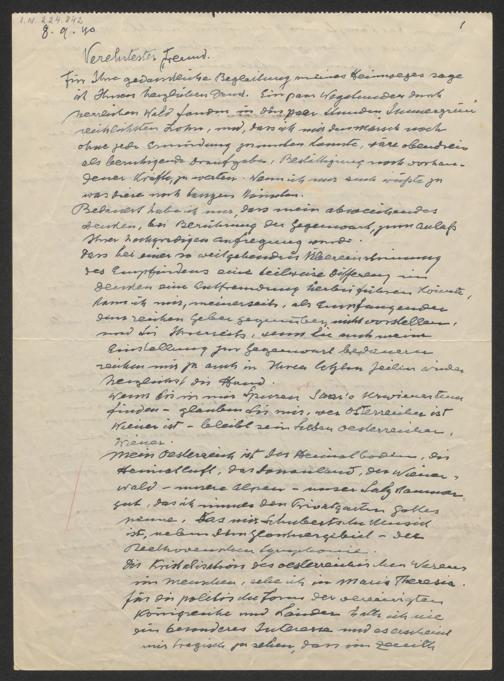 I.N. 224.842
8. 9. 40
1
Verehrtester Freund.
Für Ihre gedankliche Begleitung meines Heimweges sage
ich Ihnen herzlichen Dank. Ein paar Wegstunden durch
herrlichen Wald fanden in den paar Stunden
reichlichsten Lohn, und, dass ich mir den Marsch noch
ohne jede Ermüdung zumuten konnte, wäre obendrein
als beruhigende Draufgabe, Bestätigung noch vorhan-
dener Kräfte, zu werten. Wenn ich nur auch wüsste zu
was diese noch taugen könnten.
Bedauert habe ich nur, dass mein abweichendes
Denken, bei Berührung der Gegenwart, zum Anlass
Ihrer Aufregung wurde.
Dass bei einer so weitgehenden Übereinstimmung
des Empfindens eine teilweise Differenz im
Denken eine Entfremdung herbeiführen könnte,
kann ich mir, meinerseits, als Empfangender
dem reichen Geber gegenüber nicht vorstellen,
und Sie Ihrerseits, wenn Sie auch meine
Einstellung zur Gegenwart bedauern
reichen mir ja auch in Ihren letzten Zeilen wieder
herzlichst die Hand.
Wenn Sie in mir Spuren
finden – glauben Sie mir, wer Österreicher ist
Wiener ist – bleibt sein Leben Oesterreicher,
Wiener.
Mein Oesterreich ist der Heimatboden, die
Heimatluft, das Donauland, der Wiener-
wald – unsere Alpen – unser Salzkammer-
gut, das ich immer den Privatgarten Gottes
nenne, das mir Schubertsche Musik
ist, neben dem – der
Beethovenschen Symphonie.
Die Kristallisation des oesterreichischen Wesens
im Menschen, sehe ich in Maria Theresia.
Für die politische Form der vereinigten
Königreiche und Länder hatte ich nie
ein besonderes Interesse und es erscheint
mir tragisch zu sehen, dass im Zenith